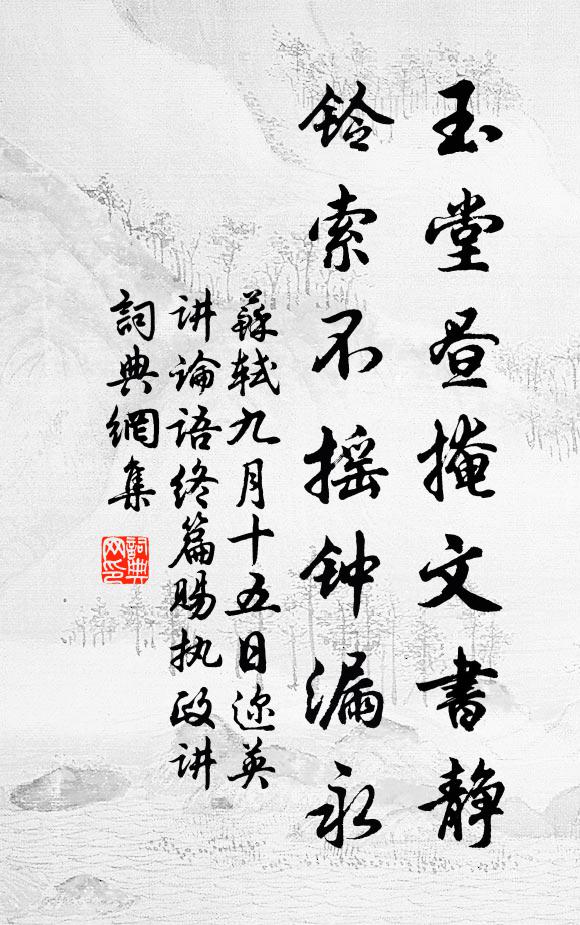 玉堂昼掩文書静
铃索不摇钟漏永
蘇轼九月十五日迩英
讲论语终篇赐执政讲
詞典網集
詞典网印